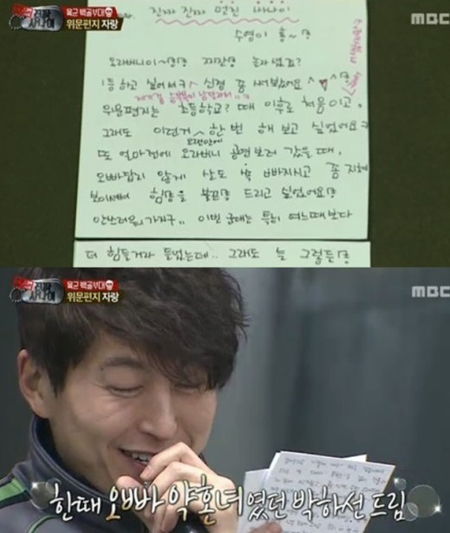 육군 백골부대
위문편지 자랑
MBC
진짜 진짜 멋진
수영이
오라버니이~ 놀라셨죠?
1등하고 싶어서ㅋ 신경 좀 써봤어요
위문편지는 초등학교? 때 이후로 처음이고,
그래도 이런거 한 번 해보고 싶었어요ㅋ
또 얼마전에 오라버니 공연 보러 갔을 때,
오빠답지 않게 살도 쏙 빠지시고 좀 지쳐
보이셔서 힘을 불끈 드리고 싶었어요
안쓰러워가지구.. 이번 군대는 특히 여느때보다
더 힘들거라 들었는데.. 그래도 늘 그렇듯
육군 백골부대
위문편지 자랑
MBC
한때 오빠 약혼녀였던 박하선 드림